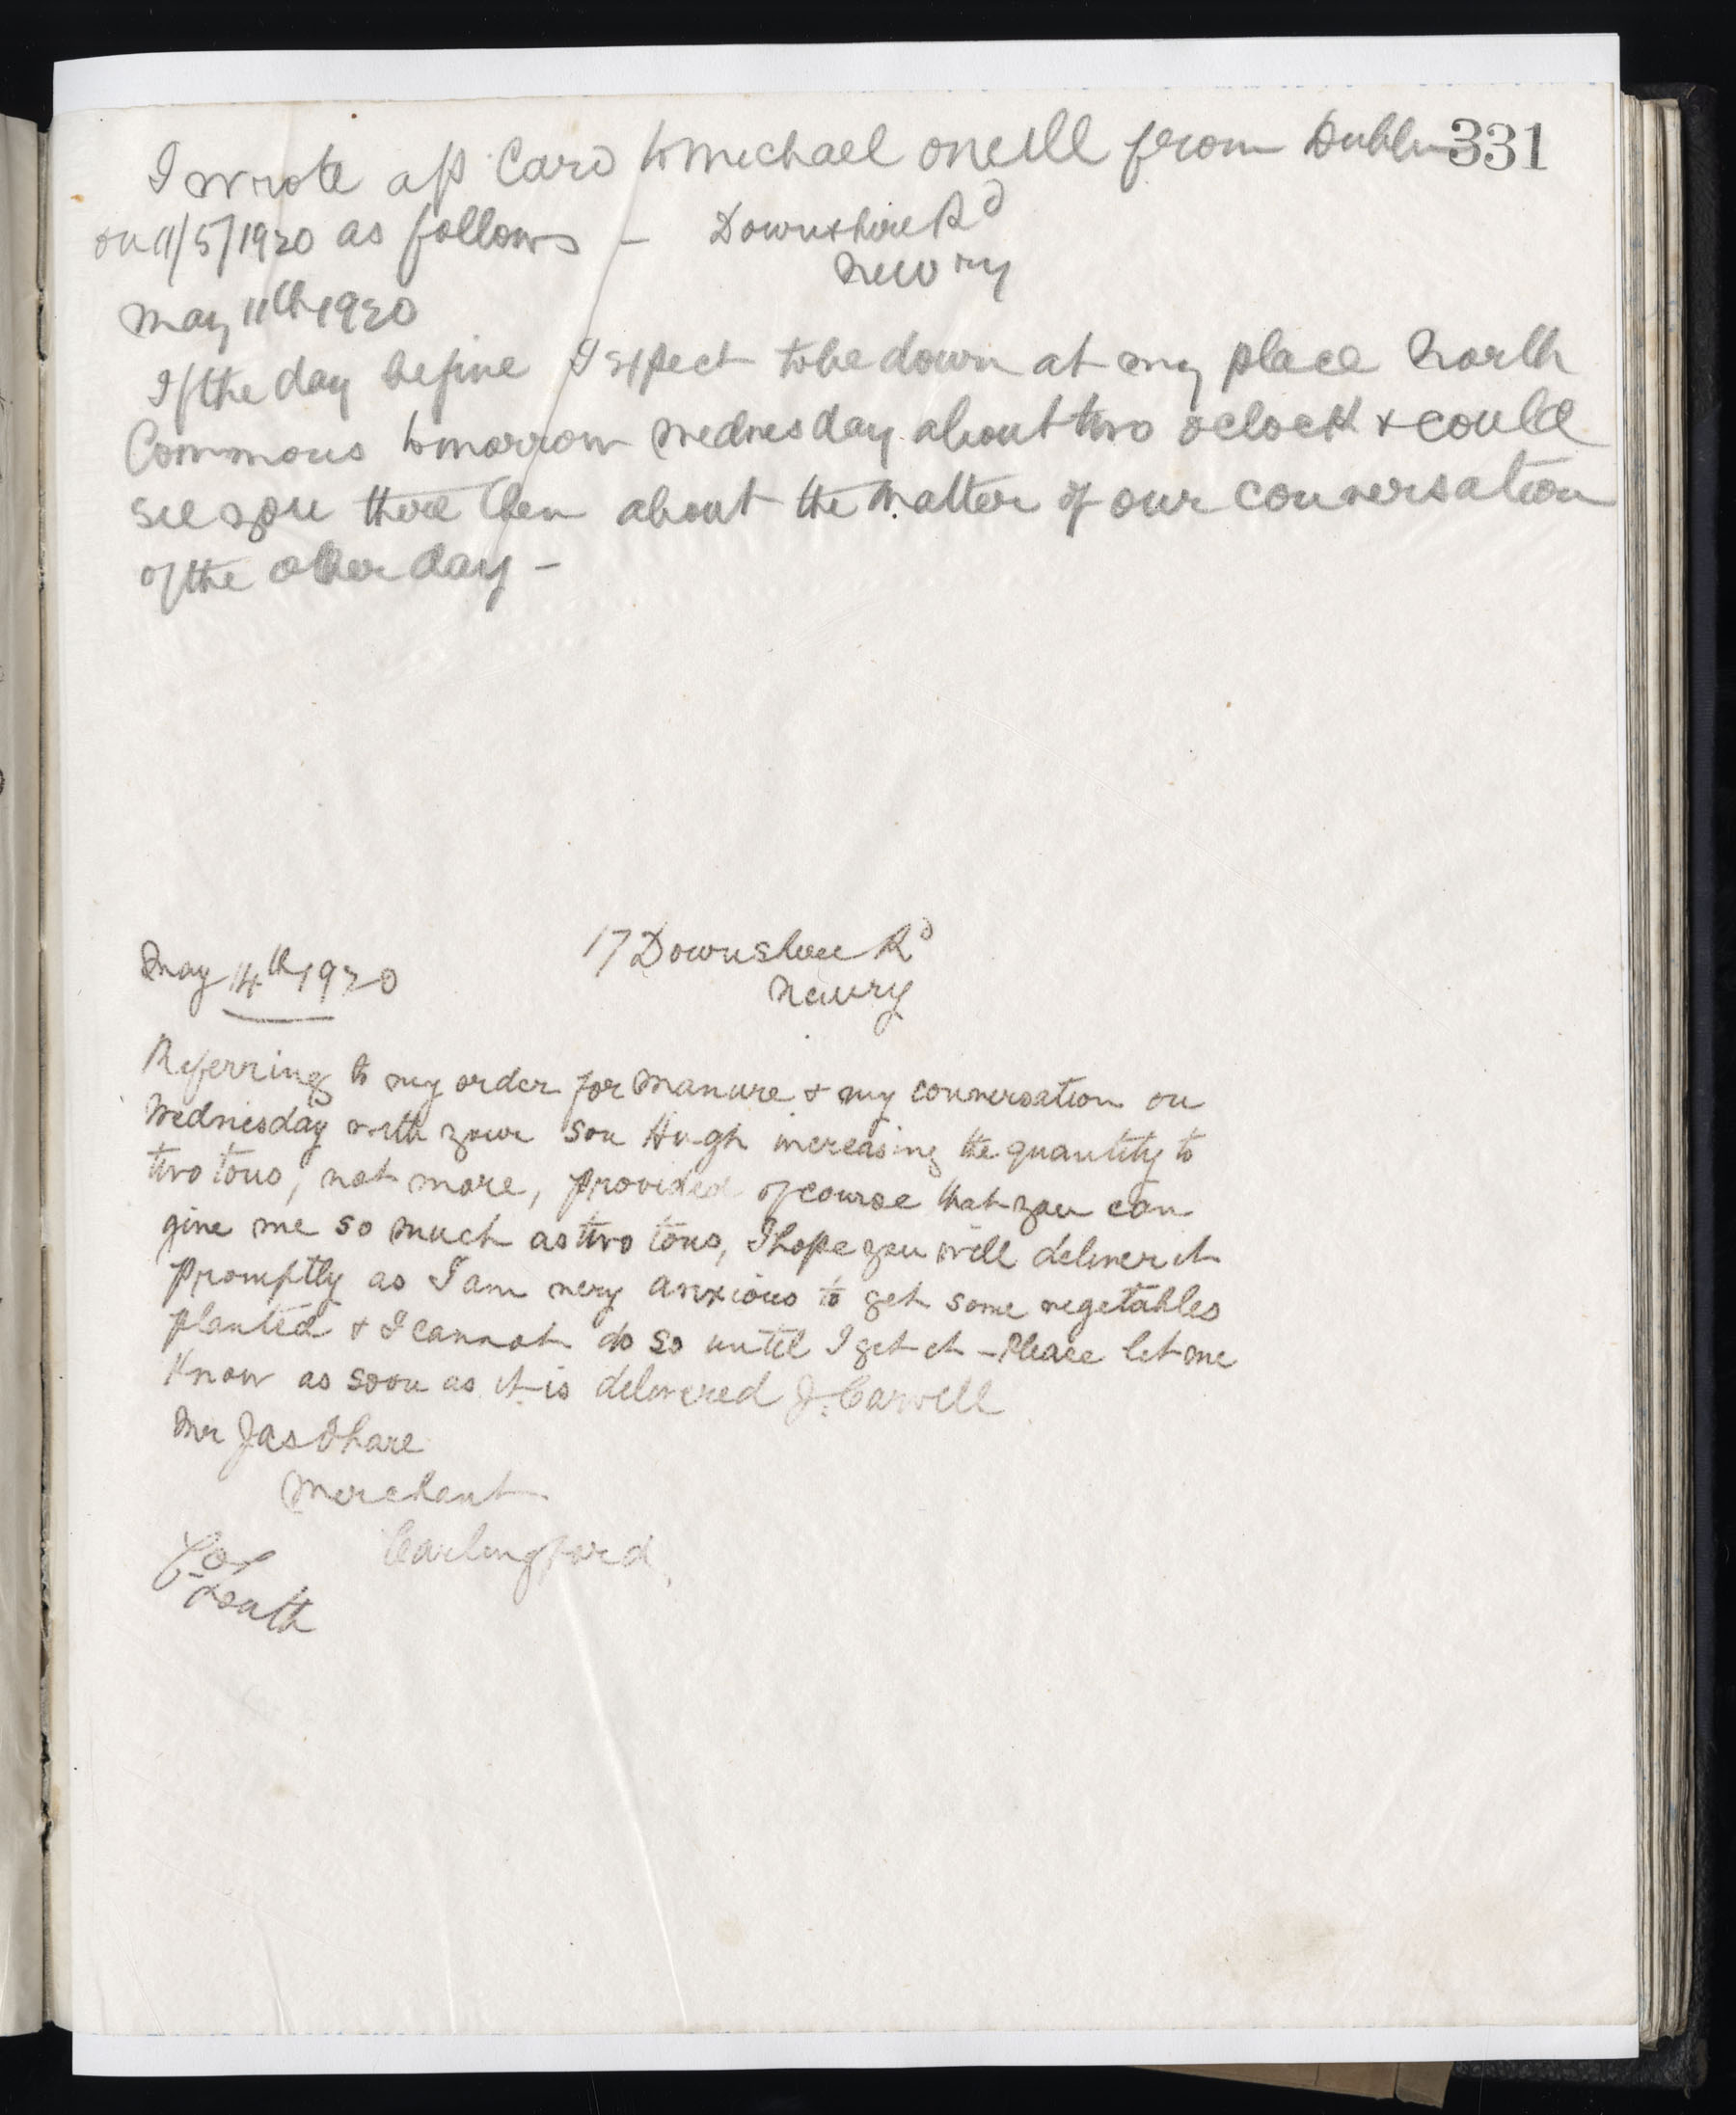 331
I wrote a p Card to Michael ONeill from Dublin
on 11/5/1920 as follows - Downshire Rd
Newry
May 11th 1920
If the day be fine I expect to be down at my place North
Commons tomorrow Wednesday about two oclock & could
see you there then about the matter of our conversation
of the other day -
May 14th 1920 17 Downshire Rd
Newry
Referring to my order for Manure & my conversation on
Wednesday with your son Hugh increasing the quantity to
two tons, not more, provided of course that you can
give me so much as two tons, I hope you will deliver it
promptly as I am very anxious to get some vegetables
planted & I cannot do so until I get it - Please let me
know as soon as it is delivered J. Carvell
Mr Jas OHare
Merchant
Carlingford
Co
Louth